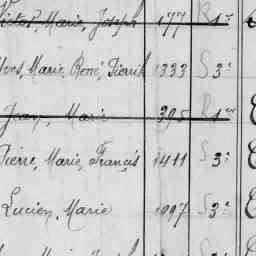 Victor, Marie, Joseph 177 R 1er
Yves, Marie, René, Pierrik 1333 S 3e
Jean, Marie 395 R 1er
Pierre, Marie, Francis 1411 S 3e
Lucien, Marie 1997 S 3e
Marie